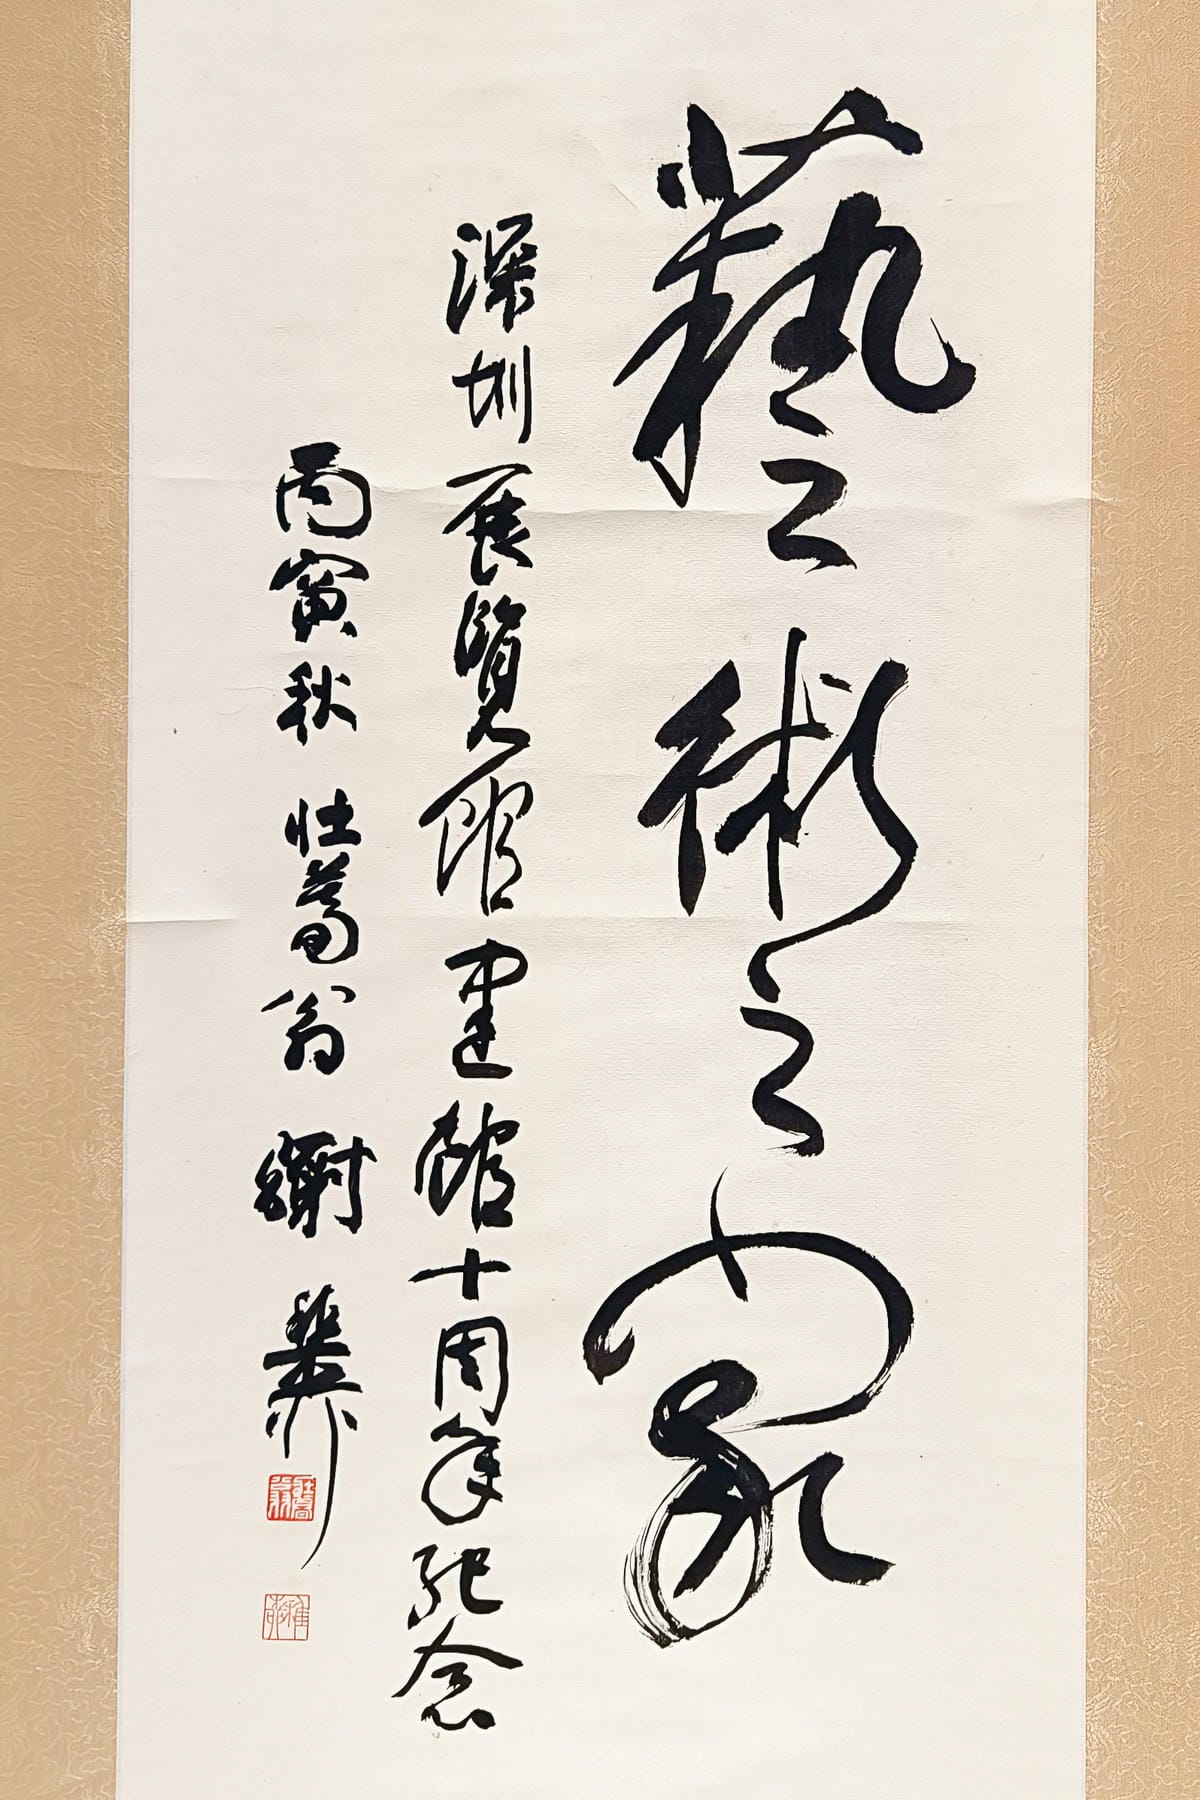 藝術之家
深圳展覽館建館十周年紀念
丙寅秋 壯暮翁 謝稚柳
壯暮翁